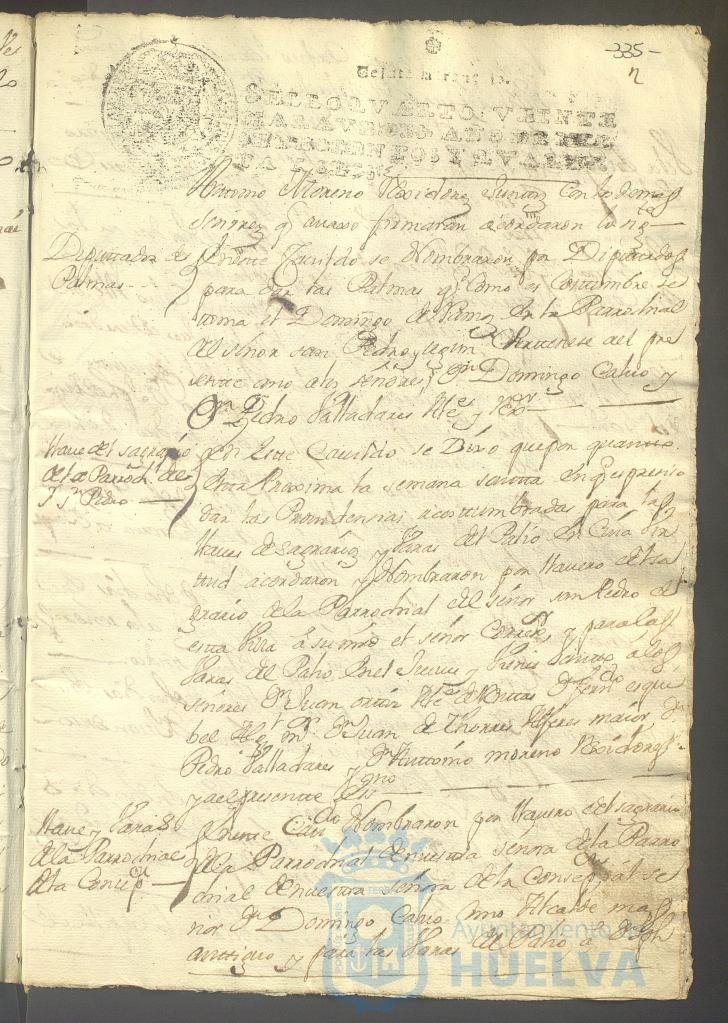 -335-
n
SELLO QVARTO, VEINTE
MARAVEDIS, AÑO DE MIL
SETECIENTOS Y QVAREN
TA Y SEIS.
Anttonio Moreno Rexidorez Juntos con los demas
señorez q avaxo firmaran acordaron lo sigte
Diputados de
Palmas
En este Cavildo se Nombraron por Diputados
para las Palmas q Como es Costumbre se
toma el Domingo de Ramos en la Parrochial
del señor san Pedro y segun del pre
sente año a los señores Dn Domingo Calvo y
Dn Pedro Valladares Rres y
llave del sagrario
de la Parroch. de
Sr Sn Pedro
En este Cavildo se Dixo que por quanto
esta Proxima la semana santta en q es preciso
dar las Providensias acostumbradas para las
llaves de sagrarios y Varas del Palio en Cuia vir
tud acordaron y Nombraron por llavero del sa
grario de la Parrochial del señor san Pedro de
esta Villa a su md el señor Correxor y para las
Varas del Palio en el Jueves y Viernes santto a los
señores Dn Juan ortiz Dn Fern esqui
bel Dn Juan de Thorres Alferes maior Dn
Pedro Valladares y Dn Anttonio moreno Rexidores
y a el presente Ssno
llave y Varas
de la Parrochial
de la Concepn
En este Cavdo Nombraron por llavero del sagrario
de la Parrochial de nuestra señora de la Parro
chial de nuestra señora de la Consepn al se
ñor Dn Domingo Calvo Alcalde mas
anttiguo y para las Varas del Palio a
Ayuntamiento de
HUELVA